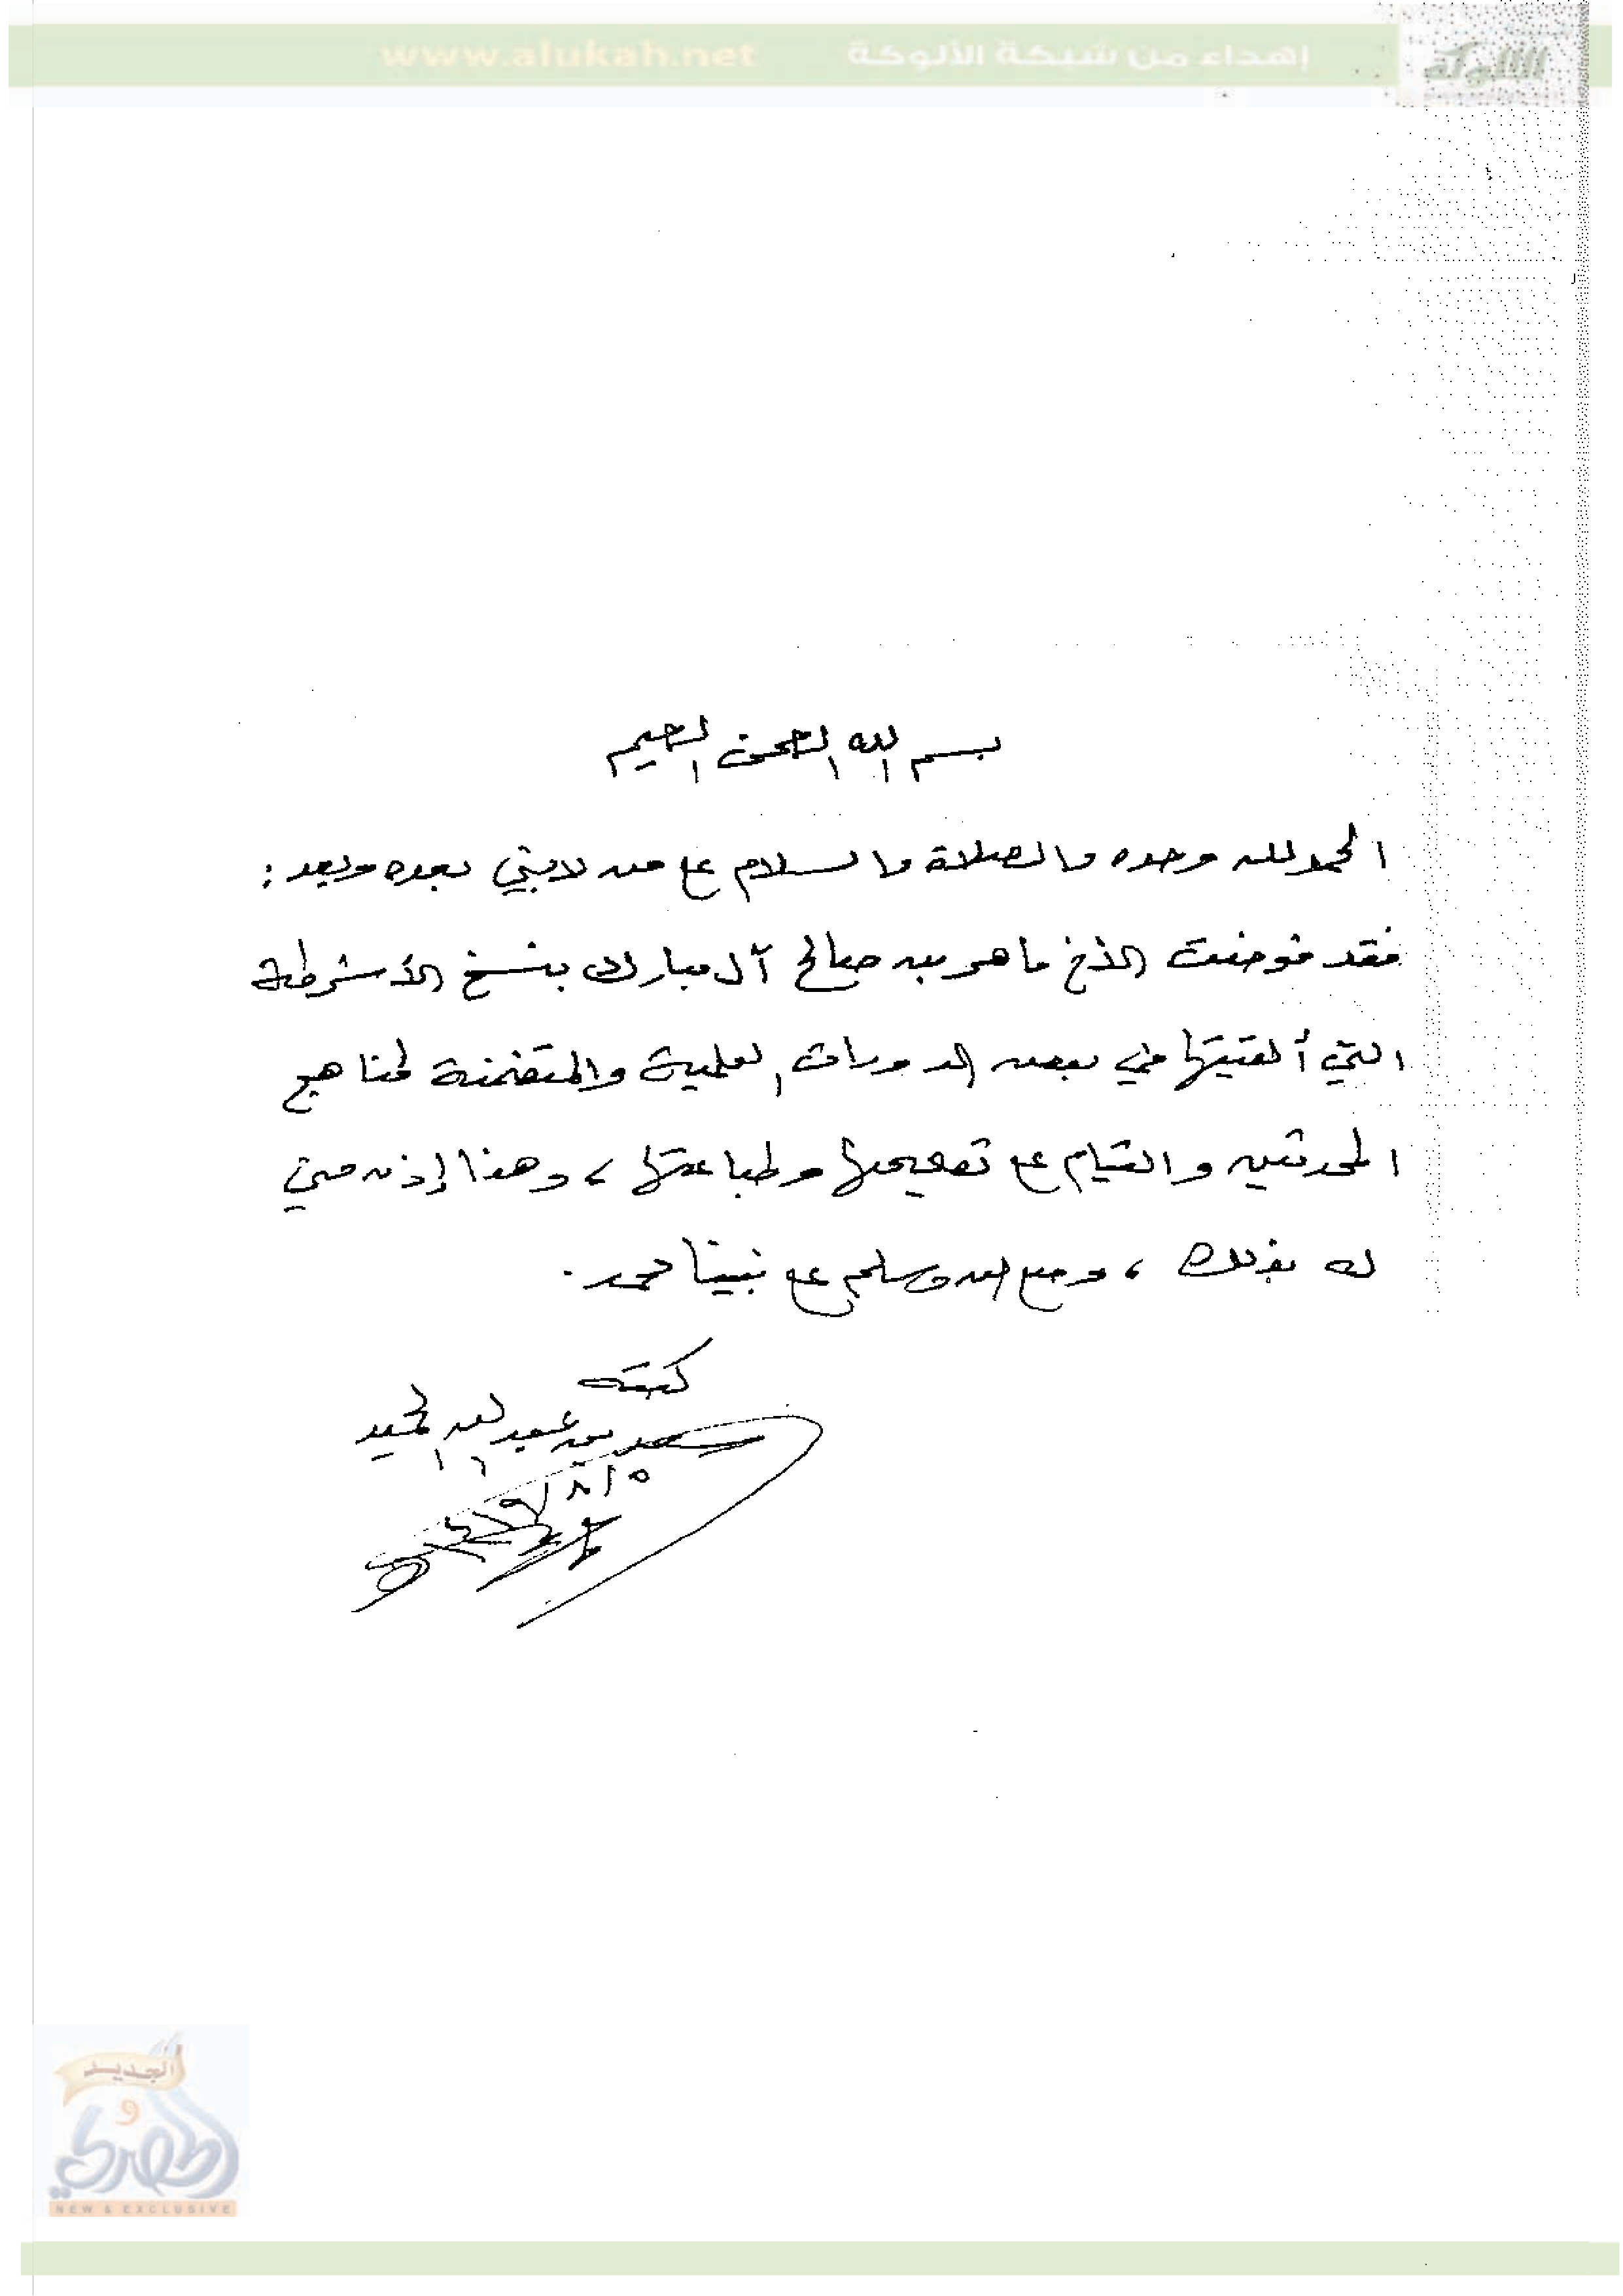 إهداء من شبكة الألوكة www.alukah.net
الألوكة
بسم الله الرحمن الرحيم
الحمد لله وحده والصلاة والسلام على من لا نبي بعده وبعد :
فقد فوضت الأخ ماهر بن صالح آل مبارك بنسخ الأشرطة
التي ألقيتها في بعض الدورات العلمية والمتضمنة لمناهج
المحدثين والقيام على تصحيحها وطباعتها ، وهذا إذن مني
له بذلك ، وصلى الله وسلم على نبينا محمد .
كتبه
سعد بن عبد الله الحميد
٥/٨/١٤١٩هـ
الجديد
و
الحصري
NEW & EXCLUSIVE